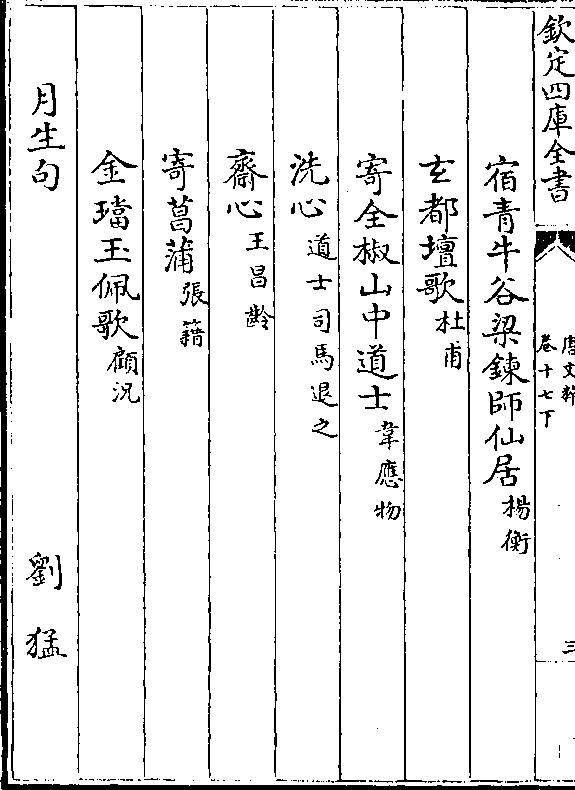 欽定四庫全書
唐文粹
卷十七下
三
宿青牛谷梁鍊師仙居 楊衡
玄都壇歌 杜甫
寄全椒山中道士 韋應物
洗心 道士司馬退之
齋心 王昌齡
寄菖蒲 張籍
金璫玉佩歌 顧況
月生句 劉猛